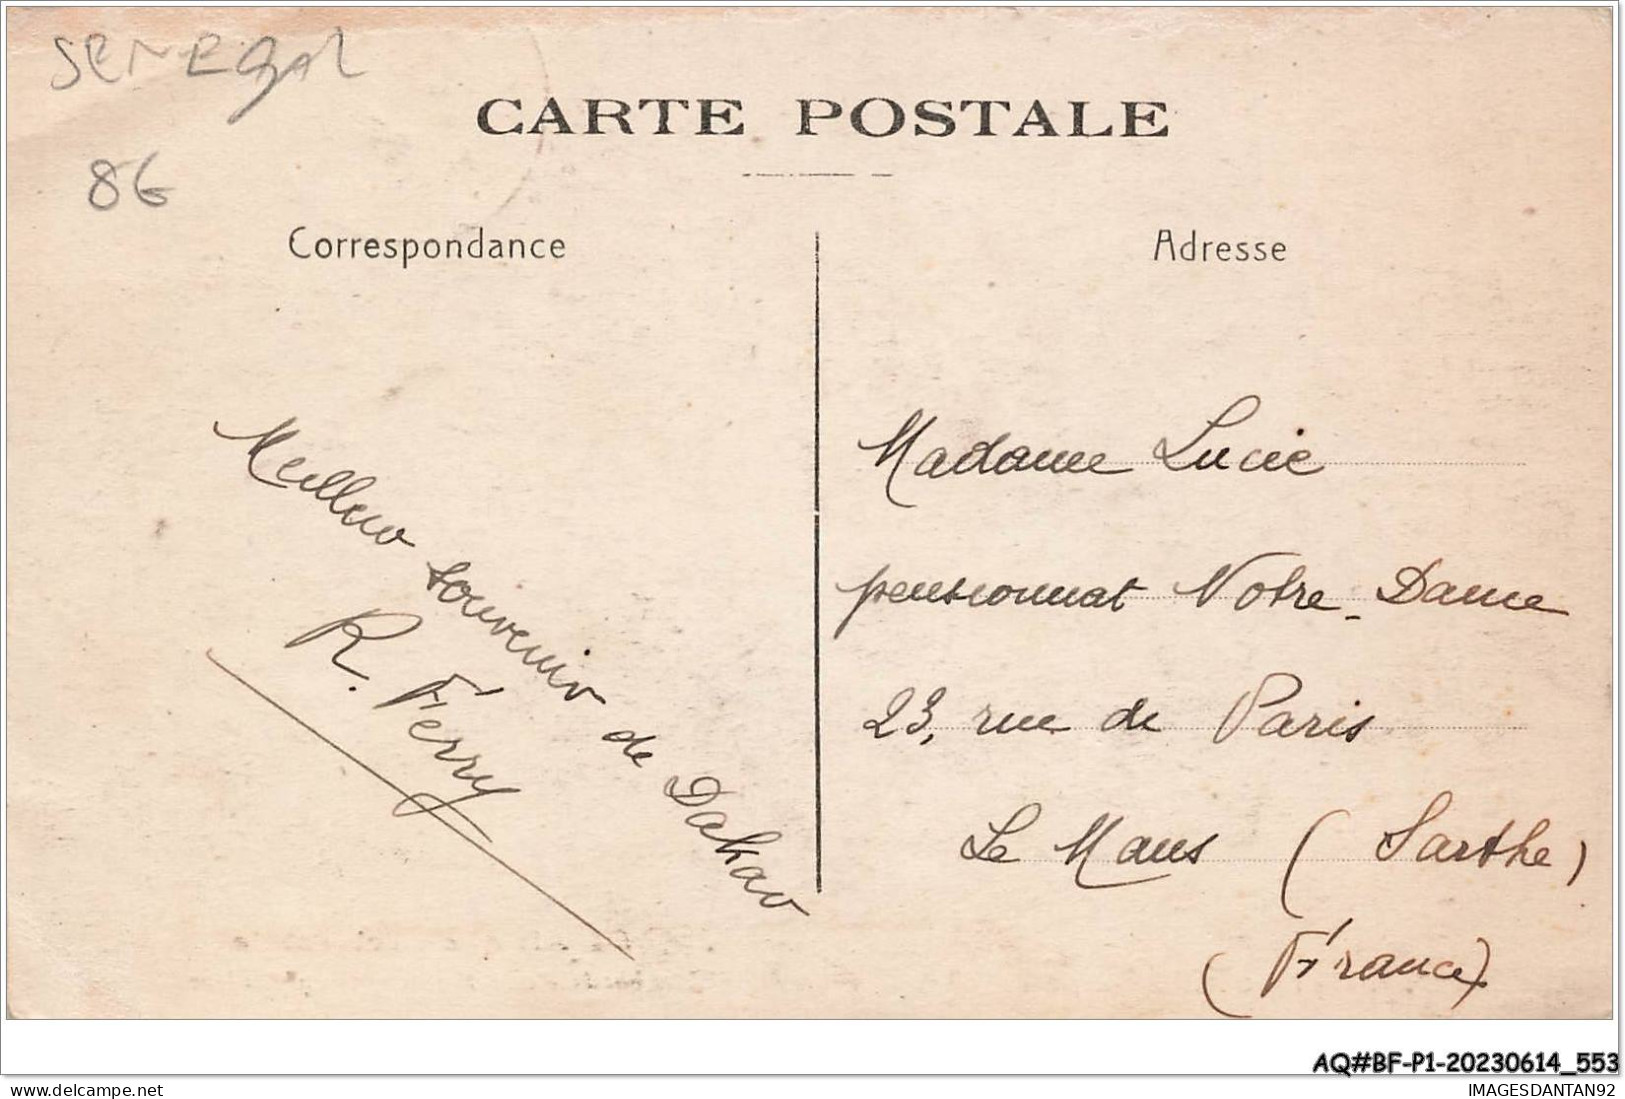 SENEGAL
86
CARTE POSTALE
Correspondance
Meilleur souvenir de Dakar
R. Ferry
Adresse
Madame Lucie
pensionnat Notre-Dame
23, rue de Paris
Le Mans (Sarthe)
(France)
AQ#BF-P1-20230614_553
www.delcampe.net
IMAGESDANTAN92